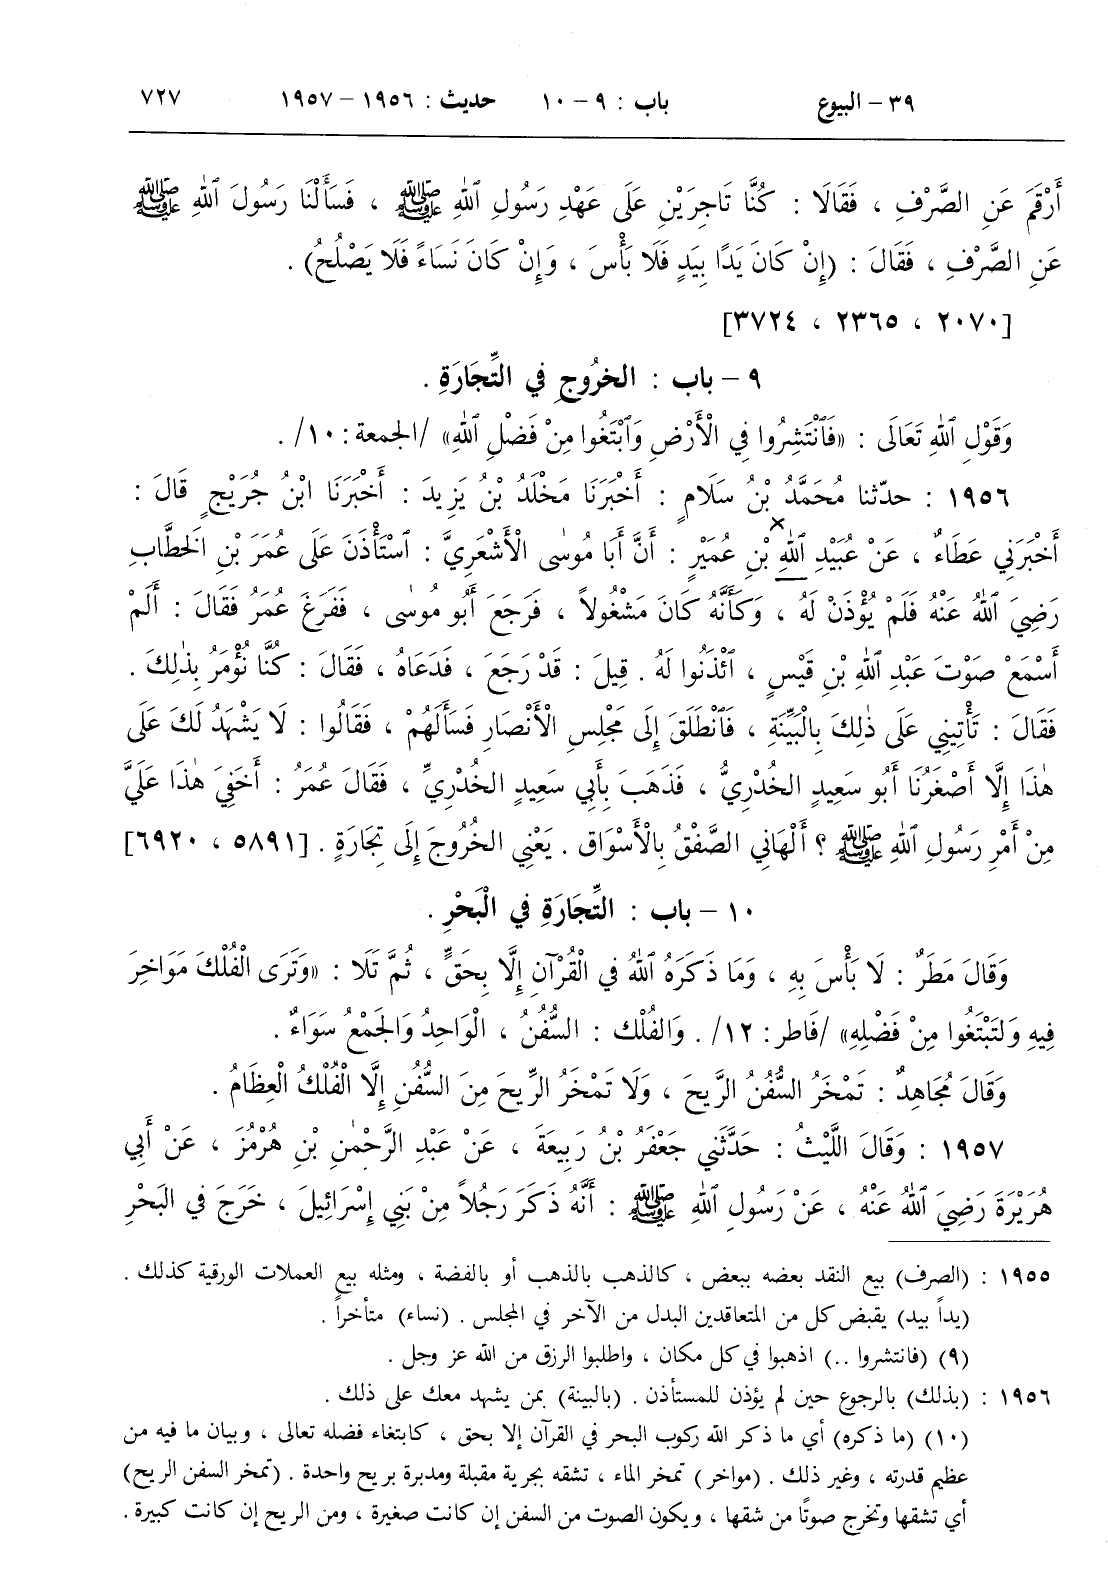 ٣٩ - البيوع باب : ٩ - ١٠ حديث : ١٩٥٦ - ١٩٥٧ ٧٢٧
أَرْقَمَ عَنِ الصَّرْفِ ، فَقَالَا : كُنَّا تَاجِرَيْنِ عَلَى عَهْدِ رَسُولِ ٱللهِ ﷺ ، فَسَأَلْنَا رَسُولَ ٱللهِ ﷺ
عَنِ الصَّرْفِ ، فَقَالَ : (إِنْ كَانَ يَدًا بِيَدٍ فَلَا بَأْسَ ، وَإِنْ كَانَ نَسَاءً فَلَا يَصْلُحُ) .
[٢٠٧٠ ، ٢٣٦٥ ، ٣٧٢٤]
٩ - باب : الخرُوجِ فِي التِّجَارَةِ .
وَقَوْلِ ٱللهِ تَعَالَى : «فَٱنْتَشِرُوا فِي الْأَرْضِ وَٱبْتَغُوا مِنْ فَضْلِ ٱللهِ» /الجمعة: ١٠/ .
١٩٥٦ : حدّثنا مُحَمَّدُ بْنُ سَلَامٍ : أَخْبَرَنَا مَخْلَدُ بْنُ يَزِيدَ : أَخْبَرَنَا ابْنُ جُرَيْجٍ قَالَ :
أَخْبَرَنِي عَطَاءٌ ، عَنْ عُبَيْدِ ٱللهِ بْنِ عُمَيْرٍ : أَنَّ أَبَا مُوسٰى الْأَشْعَرِيَّ : ٱسْتَأْذَنَ عَلَى عُمَرَ بْنِ الْخَطَّابِ
رَضِيَ ٱللهُ عَنْهُ فَلَمْ يُؤْذَنْ لَهُ ، وَكَأَنَّهُ كَانَ مَشْغُولاً ، فَرَجَعَ أَبُو مُوسٰى ، فَفَرَغَ عُمَرُ فَقَالَ : أَلَمْ
أَسْمَعْ صَوْتَ عَبْدِ ٱللهِ بْنِ قَيْسٍ ، ٱئْذَنُوا لَهُ . قِيلَ : قَدْ رَجَعَ ، فَدَعَاهُ ، فَقَالَ : كُنَّا نُؤْمَرُ بِذٰلِكَ .
فَقَالَ : تَأْتِينِي عَلَى ذٰلِكَ بِالْبَيِّنَةِ ، فَٱنْطَلَقَ إِلَى مَجْلِسِ الْأَنْصَارِ فَسَأَلَهُمْ ، فَقَالُوا : لَا يَشْهَدُ لَكَ عَلَى
هٰذَا إِلَّا أَصْغَرُنَا أَبُو سَعِيدٍ الخُدْرِيُّ ، فَذَهَبَ بِأَبِي سَعِيدٍ الخُدْرِيِّ ، فَقَالَ عُمَرُ : أَخَفِيَ هٰذَا عَلَيَّ
مِنْ أَمْرِ رَسُولِ ٱللهِ ﷺ ؟ أَلْهَانِي الصَّفْقُ بِالْأَسْوَاقِ . يَعْنِي الخُرُوجَ إِلَى تِجَارَةٍ . [٥٨٩١ ، ٦٩٢٠]
١٠ - باب : التِّجَارَةِ فِي الْبَحْرِ .
وَقَالَ مَطَرٌ : لَا بَأْسَ بِهِ ، وَمَا ذَكَرَهُ ٱللهُ فِي الْقُرْآنِ إِلَّا بِحَقٍّ ، ثُمَّ تَلَا : «وَتَرَى الْفُلْكَ مَوَاخِرَ
فِيهِ وَلِتَبْتَغُوا مِنْ فَضْلِهِ» /فَاطر: ١٢/ . وَالفُلْكُ : السُّفُنُ ، الْوَاحِدُ وَالجَمْعُ سَوَاءٌ .
وَقَالَ مُجَاهِدٌ : تَمْخَرُ السُّفُنُ الرَّيحَ ، وَلَا تَمْخَرُ الرِّيحَ مِنَ السُّفُنِ إِلَّا الْفُلْكُ الْعِظَامُ .
١٩٥٧ : وَقَالَ اللَّيْثُ : حَدَّثَنِي جَعْفَرُ بْنُ رَبِيعَةَ ، عَنْ عَبْدِ الرَّحْمٰنِ بْنِ هُرْمُزَ ، عَنْ أَبِي
هُرَيْرَةَ رَضِيَ ٱللهُ عَنْهُ ، عَنْ رَسُولِ ٱللهِ ﷺ : أَنَّهُ ذَكَرَ رَجُلاً مِنْ بَنِي إِسْرَائِيلَ ، خَرَجَ فِي البَحْرِ
١٩٥٥ : (الصرف) بيع النقد بعضه ببعض ، كالذهب بالذهب أو بالفضة ، ومثله بيع العملات الورقية كذلك .
(يداً بيد) يقبض كل من المتعاقدين البدل من الآخر في المجلس . (نساء) متأخراً .
(٩) (فانتشروا ..) اذهبوا في كل مكان ، واطلبوا الرزق من الله عز وجل .
١٩٥٦ : (بذلك) بالرجوع حين لم يؤذن للمستأذن . (بالبينة) بمن يشهد معك على ذلك .
(١٠) (ما ذكره) أي ما ذكر الله ركوب البحر في القرآن إلا بحق ، كابتغاء فضله تعالى ، وبيان ما فيه من
عظيم قدرته ، وغير ذلك . (مواخر) تمخر الماء ، تشقه بجرية مقبلة ومدبرة بريح واحدة . (تمخر السفن الريح)
أي تشقها وتخرج صوتًا من شقها ، ويكون الصوت من السفن إن كانت صغيرة ، ومن الريح إن كانت كبيرة .